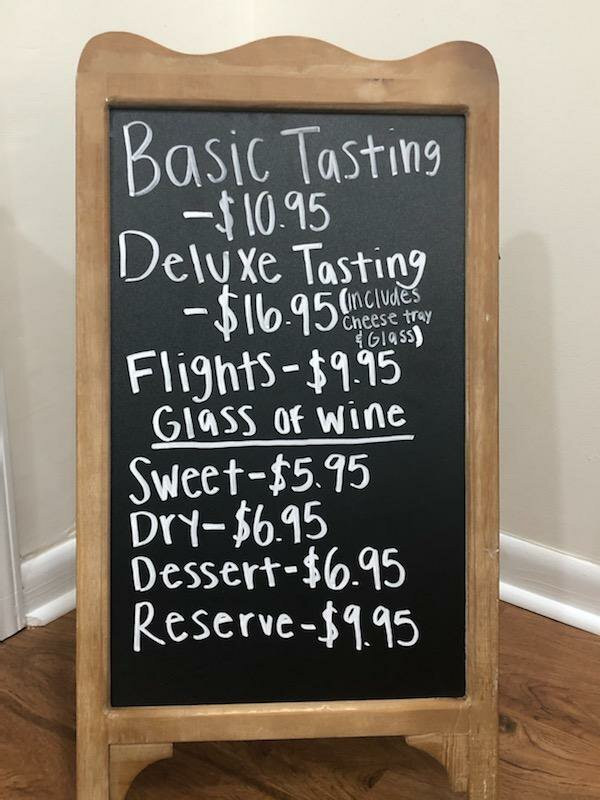 Basic Tasting
-$10.95
Deluxe Tasting
-$16.95 (includes
Cheese tray
& Glass)
Flights-$9.95
Glass of wine
Sweet-$5.95
Dry-$6.95
Dessert-$6.95
Reserve-$9.95